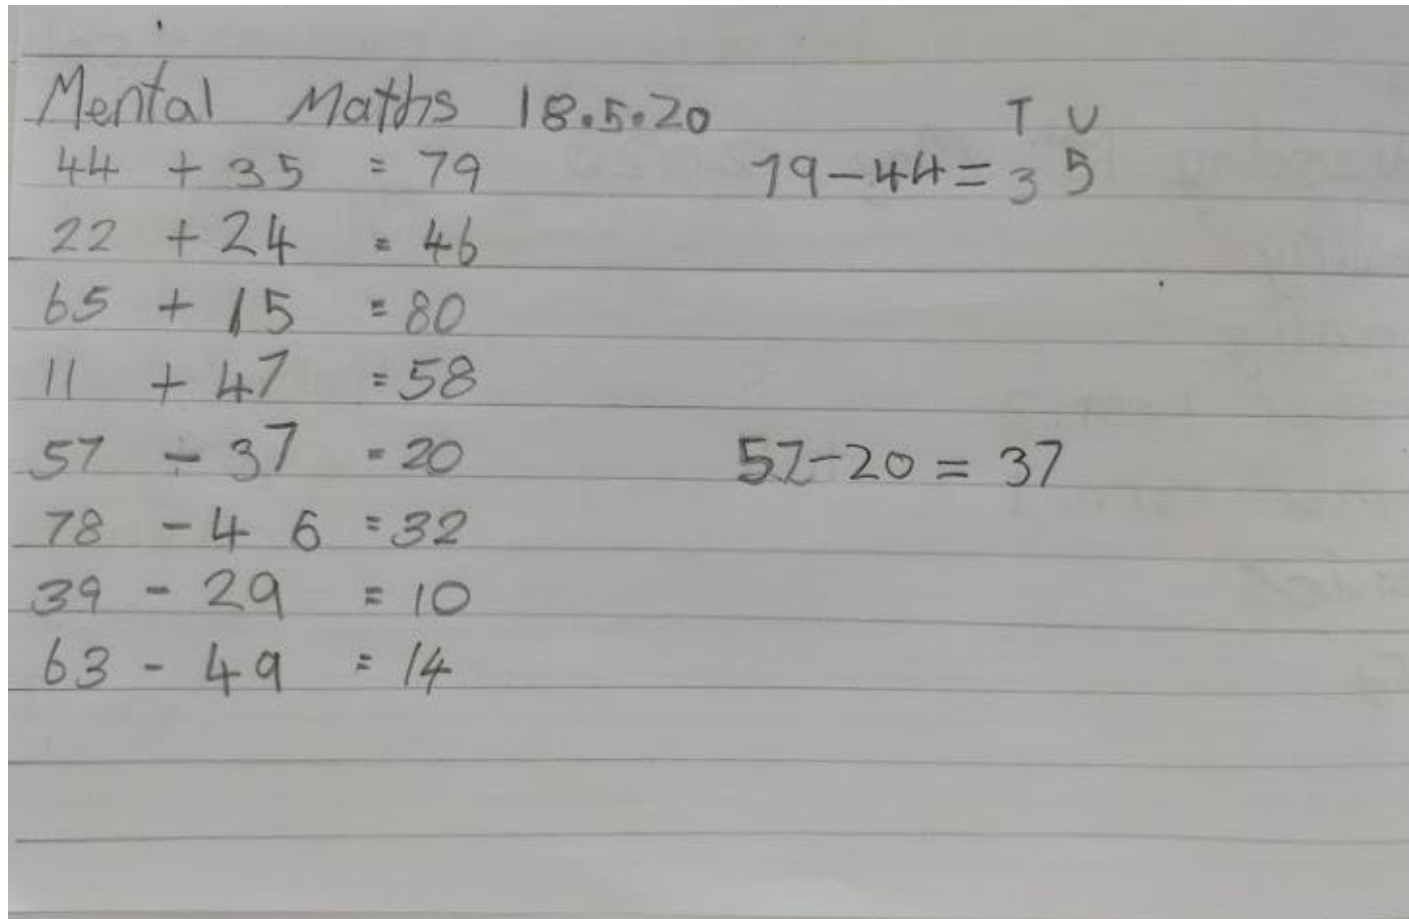 Mental Maths 18.5.20
T U
44 + 35 = 79
79-44=35
22 + 24 = 46
65 + 15 = 80
11 + 47 = 58
57 - 37 = 20
57-20 = 37
78 - 46 = 32
39 - 29 = 10
63 - 49 = 14